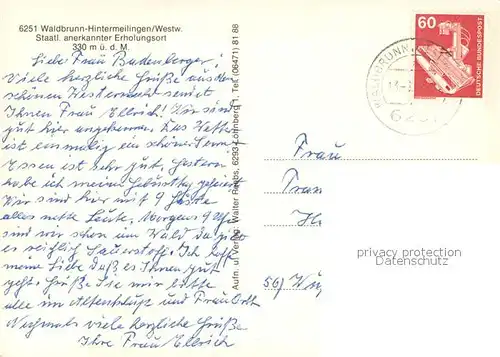 6251 Waldbrunn-Hintermeilingen/Westw.
Staatl. anerkannter Erholungsort
330 m ü. d. M.
Liebe Frau Budenberger!
Viele herzliche Grüße aus dem
schönen Westerwald sendet
Ihnen Frau Ellrich! Wir sind
gut hier angekommen. Das Wetter
ist einmalig ein schöner
Essen ist sehr gut. Gestern
habe ich meinen Geburtstag gefeiert
Wir sind hier mit 9 Gäste
alles nette Leute. Morgens 9 Uhr
sind wir schon im Wald da gibt
es reichlich Sauerstoff. Ich hoffe
meine Liebe daß es Ihnen gut
geht. Grüße Sie mir bitte
alle im Altenklub und Frau Orth
Nochmals viele herzliche Grüße
Ihre Frau Ellrich
Aufn. u. Verlag: Walter 6293 Löhnberg 1, Tel. (06471) 81 88
60
DEUTSCHE BUNDESPOST
WALDBRUNN
625
Frau
56) Wup
privacy protection
Datenschutz